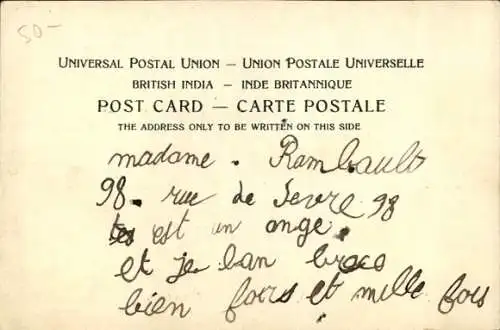 50-
UNIVERSAL POSTAL UNION — UNION POSTALE UNIVERSELLE
BRITISH INDIA — INDE BRITANNIQUE
POST CARD — CARTE POSTALE
THE ADDRESS ONLY TO BE WRITTEN ON THIS SIDE
madame. Rambault
98. rue de Sevre 98
est un ange.
et je l'an brace
bien fois et mille fois